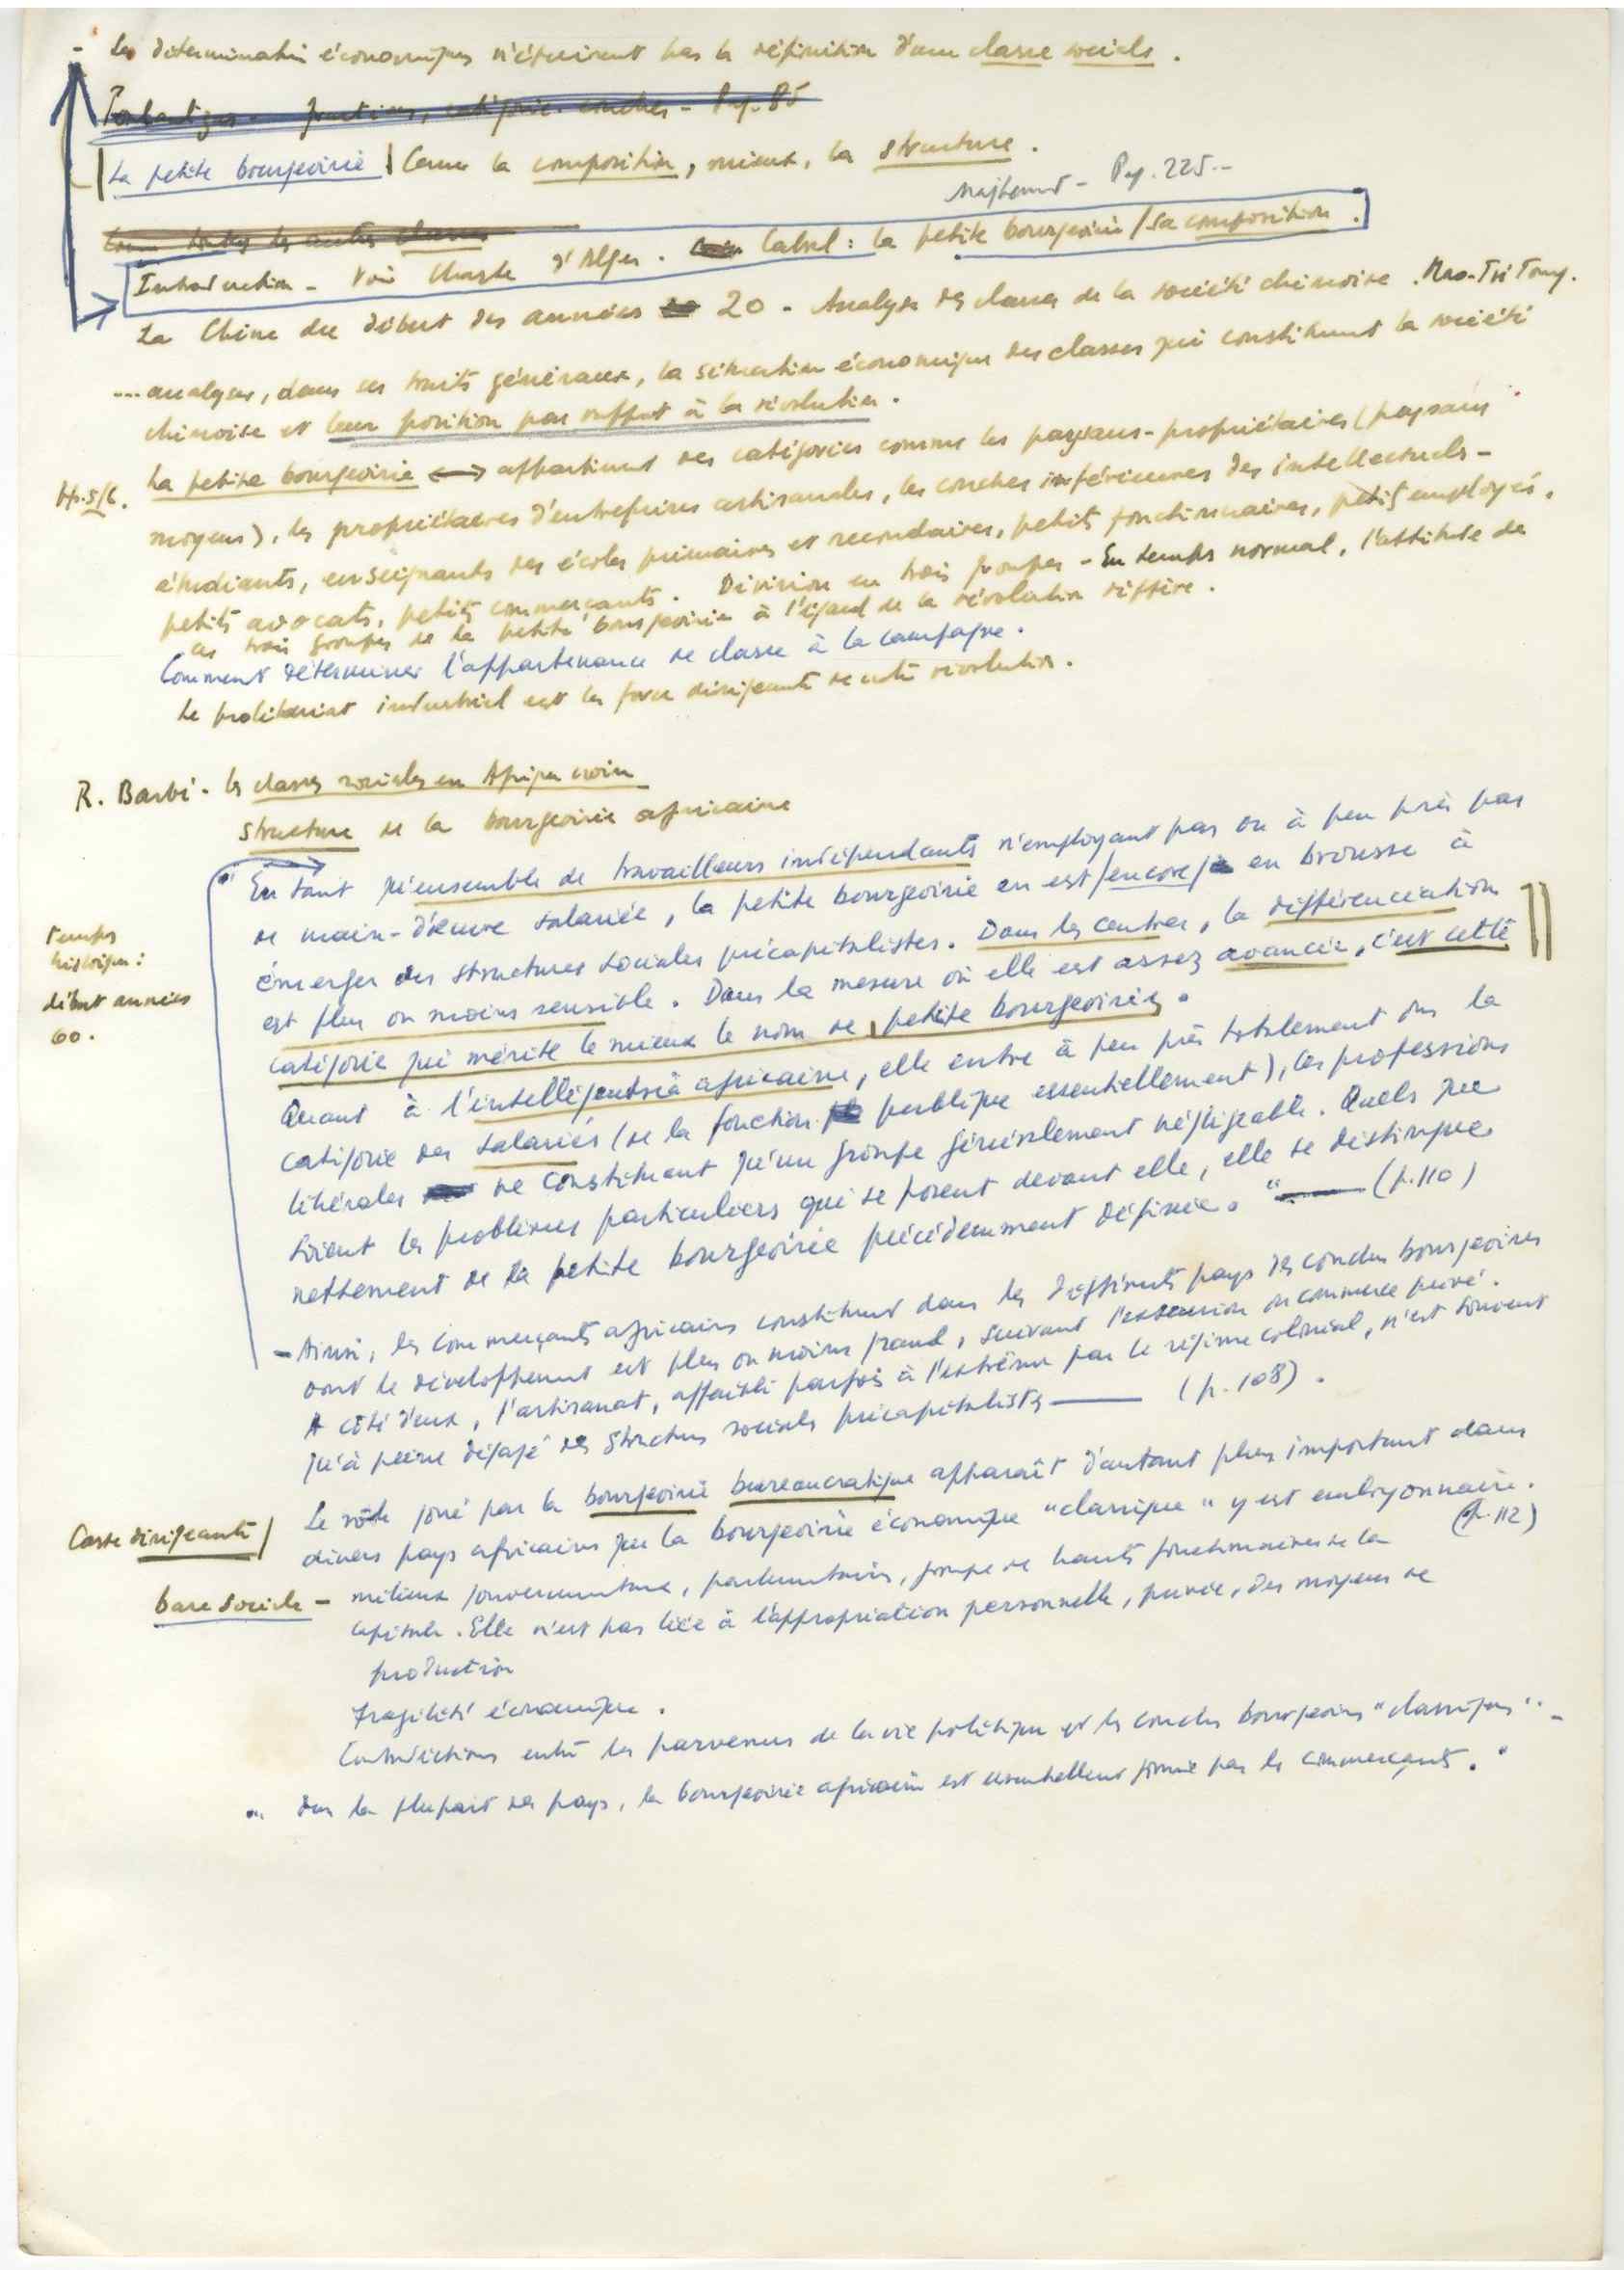 - Les déterminations économiques n'épuisent pas la définition d'une classe sociale.
Poulantzas - fractions, catégories couches - Pag. 85
La petite bourgeoisie | Cerner la composition, mieux, la structure.
Pag. 225.-
Comme toutes les autres classes
Introduction - Voir Charte d'Alger. Cabral : la petite bourgeoisie / sa composition.
La Chine du début des années 20 - Analyse des classes de la société chinoise. Mao-Tsé Toung.
... analyser, dans ses traits généraux, la situation économique des classes qui constituent la société
chinoise et leur position par rapport à la révolution.
La petite bourgeoisie ↔ appartiennent des catégories comme les paysans-propriétaires (paysans
moyens), les propriétaires d'entreprises artisanales, les couches inférieures des intellectuels -
étudiants, enseignants des écoles primaires et secondaires, petits fonctionnaires, petits employés,
petits avocats, petits commerçants. Division en trois groupes - En temps normal, l'attitude de
ces trois groupes de la petite bourgeoisie à l'égard de la révolution diffère.
Comment déterminer l'appartenance de classe à la campagne.
Le prolétariat industriel est la force dirigeante de notre révolution.
R. Barbé - les classes sociales en Afrique noire
structure de la bourgeoisie africaine
" En tant qu'ensemble de travailleurs indépendants n'employant pas ou à peu près pas
de main-d'œuvre salariée, la petite bourgeoisie en est /encore/ en brousse à
émerger des structures sociales précapitalistes. Dans les centres, la différenciation
est plus ou moins sensible. Dans la mesure où elle est assez avancée, c'est cette
catégorie qui mérite le mieux le nom de petite bourgeoisie.
temps
historique :
début années
60.
Quant à l'intelligentsia africaine, elle entre à peu près totalement dans la
catégorie des salariés (de la fonction publique essentiellement), les professions
libérales ne constituant qu'un groupe généralement négligeable. Quels que
soient les problèmes particuliers qui se posent devant elle, elle se distingue
nettement de la petite bourgeoisie précédemment définie. " — (p. 110)
- Ainsi, les commerçants africains constituent dans les différents pays des couches bourgeoises
dont le développement est plus ou moins grand, suivant l'extension du commerce privé.
A côté d'eux, l'artisanat, affaibli parfois à l'extrême par le régime colonial, n'est souvent
qu'à peine dégagé des structures sociales précapitalistes — (p. 108).
Le rôle joué par la bourgeoisie bureaucratique apparaît d'autant plus important dans
divers pays africains que la bourgeoisie économique "classique" y est embryonnaire.
Caste dirigeante / (p. 112)
base sociale - milieux gouvernementaux, parlementaires, groupe de hauts fonctionnaires de la
capitale. Elle n'est pas liée à l'appropriation personnelle, privée, des moyens de
production
Fragilité économique.
Contradictions entre les parvenus de la vie politique et les couches bourgeoises "classiques" -
" Dans la plupart des pays, la bourgeoisie africaine est essentiellement formée par les commerçants. "